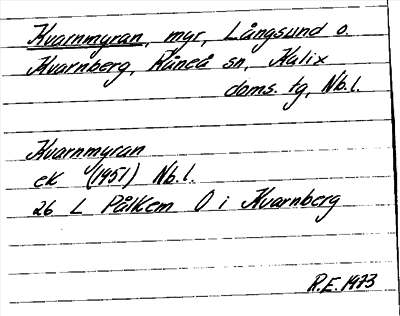 Kvarnmyran, myr, Långsund o.
Kvarnberg, Råneå sn, Kalix
doms. tg, Nb.l.
Kvarnmyran
ek (1951) Nb.l.
26 L Pålkem O i Kvarnberg
R.E. 1973